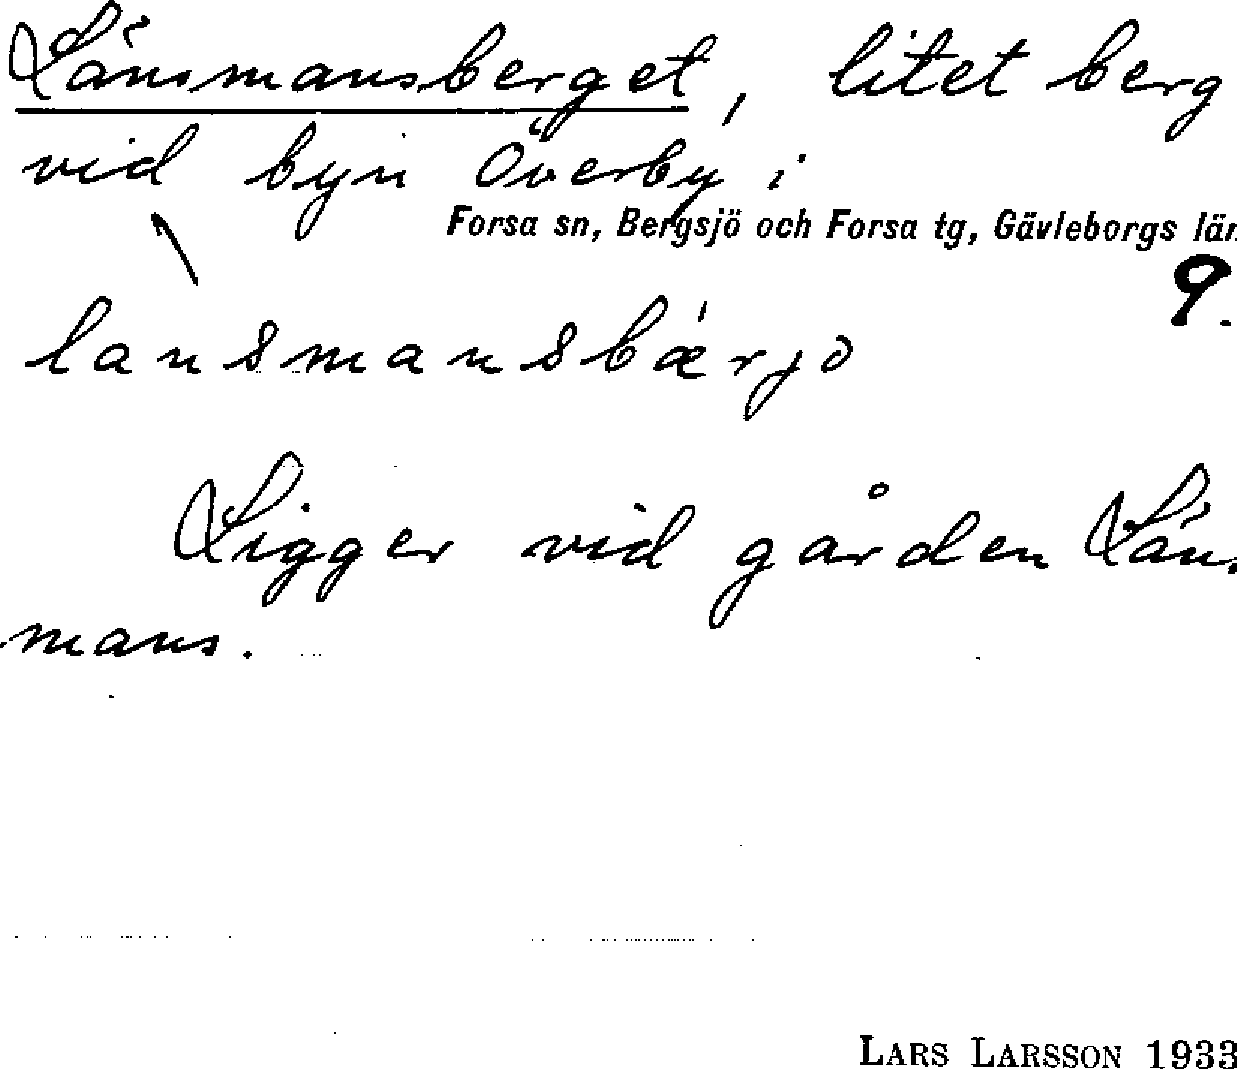 Länsmansberget, litet berg
vid byn Överby i
Forsa sn, Bergsjö och Forsa tg, Gävleborgs län
9.
\
lansmansbǽrjɔ
Ligger vid gården Läns
mans.
LARS LARSSON 1933